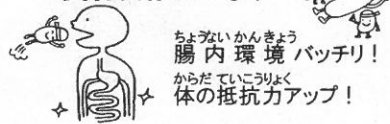 ちょうないかんきょう
腸内環境 バッチリ!
からだ ていこうりょく
体の抵抗力アップ!